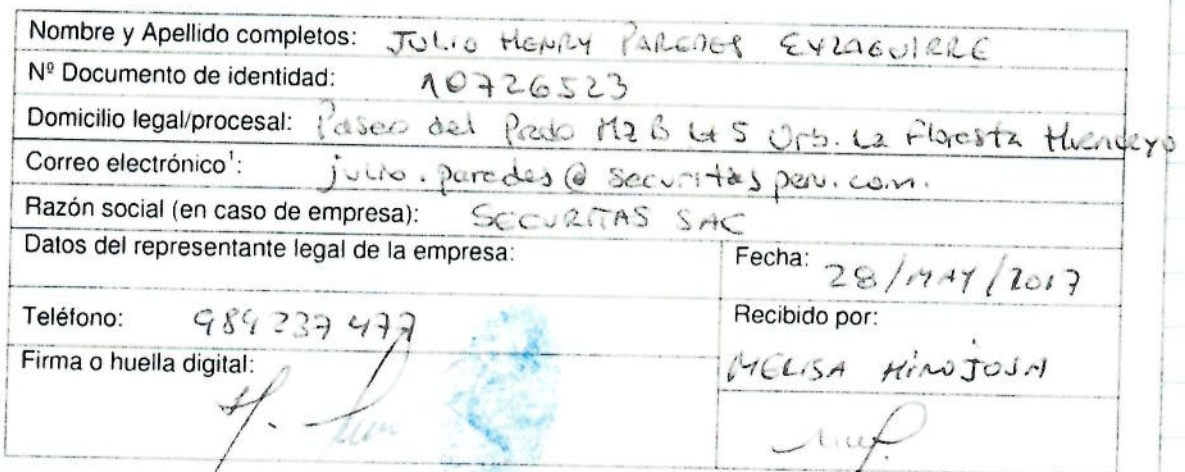 Nombre y Apellido completos: JULIO HENRY PAREDES EYZAGUIRRE
Nº Documento de identidad: 10726523
Domicilio legal/procesal: Paseo del Prado Mz B Lt 5 Urb. La Floresta Huancayo
Correo electrónico¹: julio.paredes@securitasperu.com.
Razón social (en caso de empresa): SECURITAS SAC
Datos del representante legal de la empresa:
Fecha: 28/MAY/2017
Teléfono: 989237477
Recibido por:
Firma o huella digital:
MELISA HINOJOSA